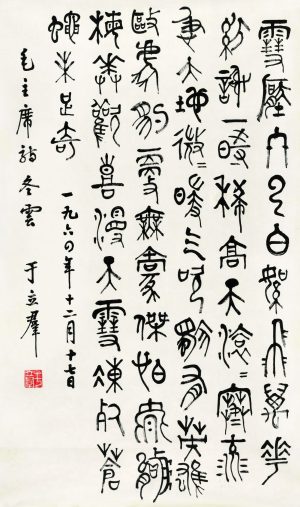 雪壓冬雲白絮飛萬花
紛謝一時稀高天滾滾寒流
急大地微微暖氣吹獨有英雄
驅虎豹更無豪傑怕熊羆
梅花歡喜漫天雪凍死蒼
蠅未足奇 一九六四年十二月十七日
毛主席詩冬雲 于立群